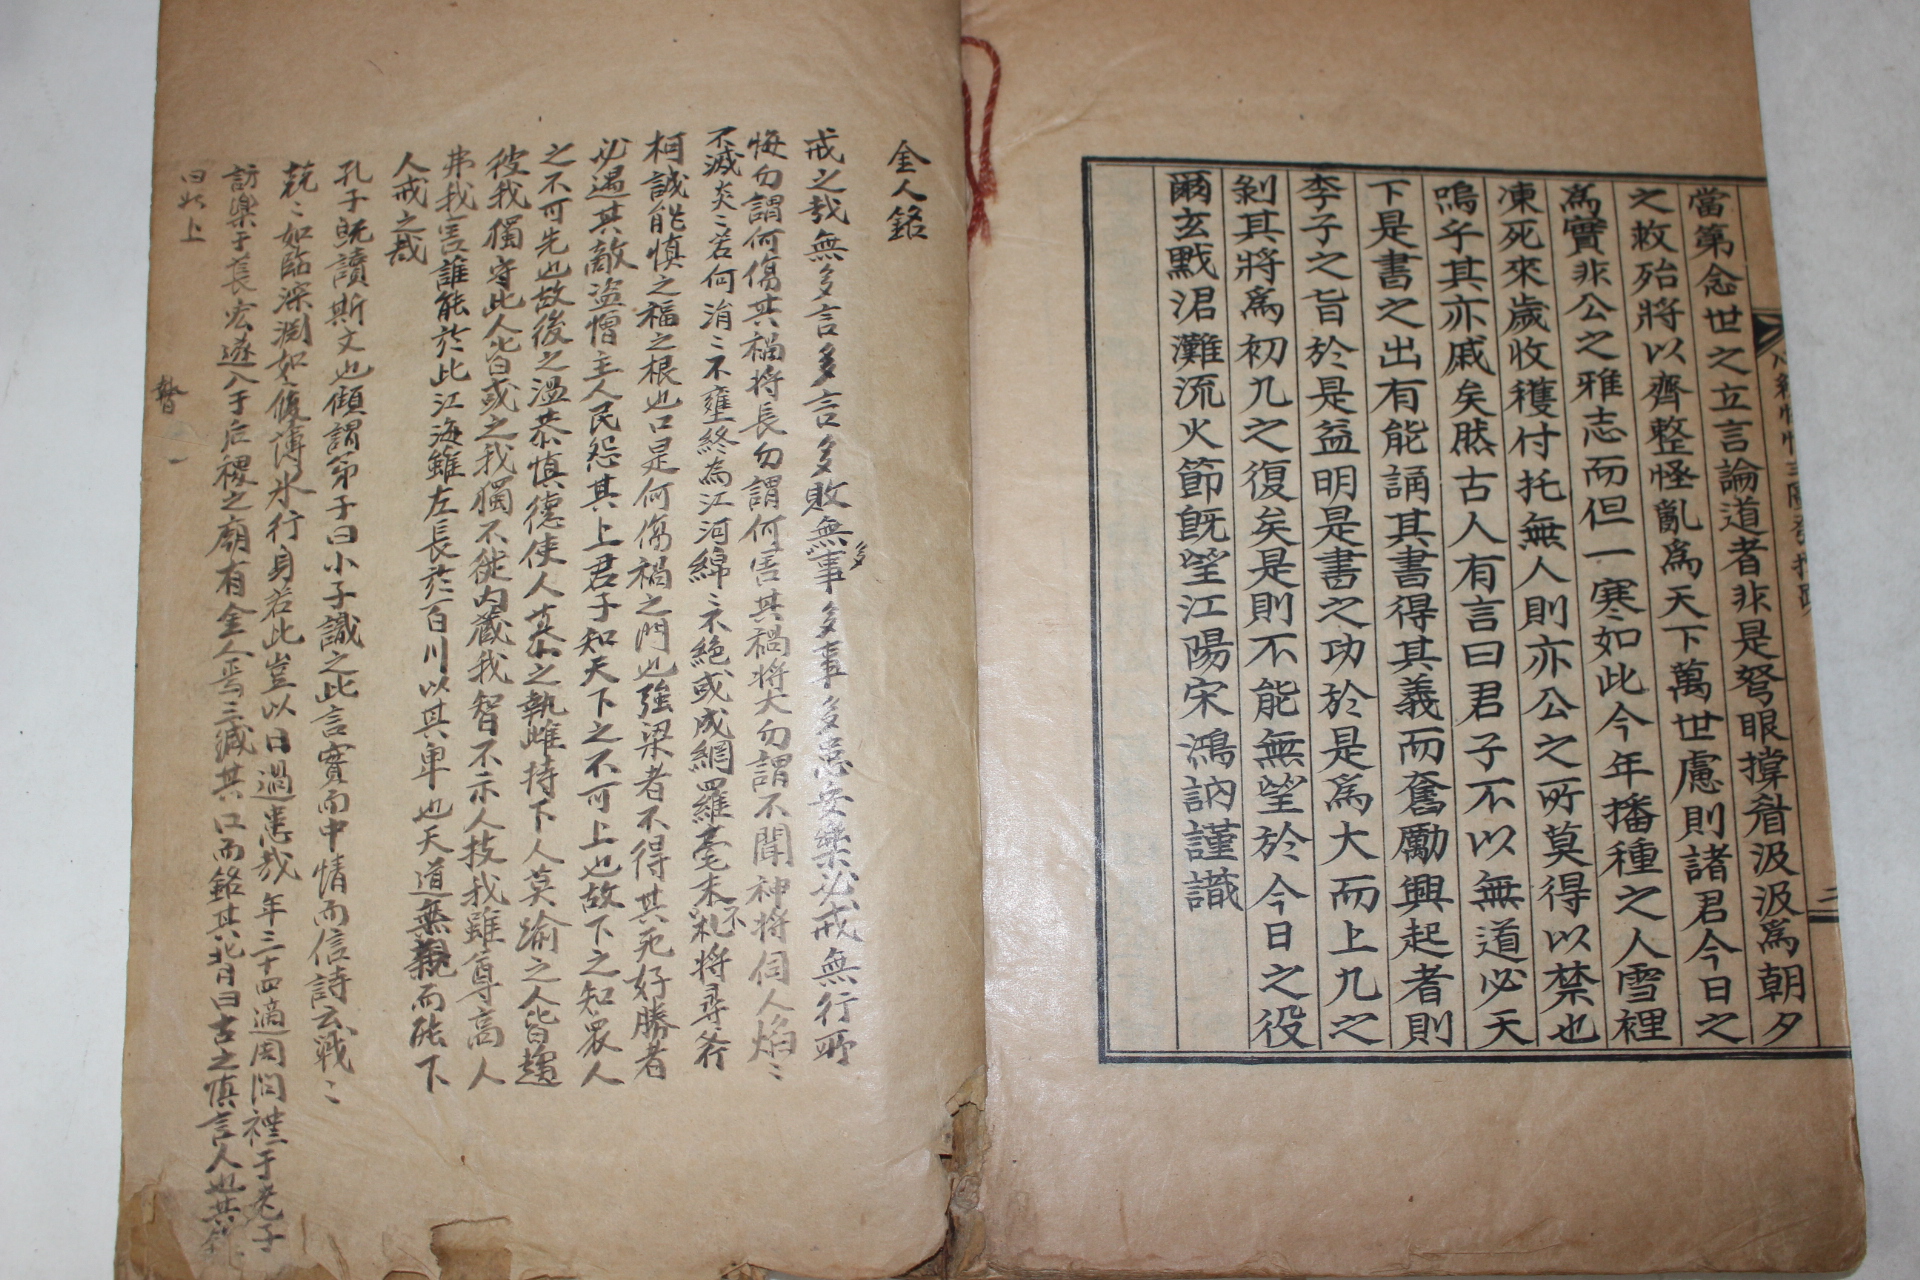 當第念世之立言論道者非是弩眼撑眉汲汲爲朝夕
之救殆將以齊整怪亂爲天下萬世慮則諸君今日之
爲實非公之雅志而但一寒如此今年播種之人雪裡
凍死來歲收穫付托無人則亦公之所莫得以禁也
嗚乎其亦戚矣然古人有言曰君子不以無道必天
下是書之出有能誦其書得其義而奮勵興起者則
李子之旨於是益明是書之功於是爲大而上九之
剝其將爲初九之復矣是則不能無望於今日之役
爾玄黓涒灘流火節旣望江陽宋鴻訥謹識
金人銘
戒之哉無多言多言多敗無多事多事多患安樂必戒無行所
悔勿謂何傷其禍將長勿謂何害其禍將大勿謂不聞神將伺人焰〻
不滅炎〻若何涓〻不壅終為江河綿〻不絶或成網羅毫末不札將尋斧
柯誠能慎之福之根也口是何傷禍之門也強梁者不得其死好勝者
必遇其敵盜憎主人民怨其上君子知天下之不可上也故下之知衆人
之不可先也故後之溫恭慎德使人慕之執雌持下人莫踰之人皆趨
彼我獨守此人皆或之我獨不徙內藏我智不示人技我雖尊高人
弗我害誰能於此江海雖左長於百川以其卑也天道無親而能下
人戒之哉
孔子旣讀斯文也傾謂弟子曰小子識之此言實而中情而信詩云戰〻
兢〻如臨深淵如履薄氷行身若此豈以口過患哉年三十四適周問禮于老子
訪樂于萇宏遊入于后稷之廟有金人焉三減其口而銘其背曰古之慎言人也其銘
曰此上